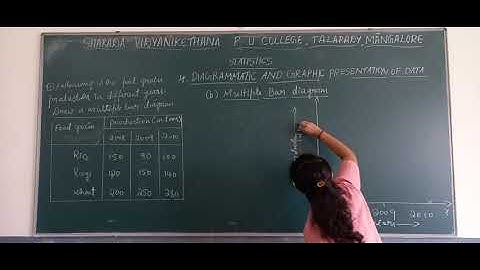 SHARADA VIDYANIKETHANA P U COLLEGE, TALAPADY, MANGALORE
STATISTICS
* DIAGRAMMATIC AND GRAPHIC PRESENTATION OF DATA
(b) Multiple Bar diagram
1) Following is the food grain
production in different years
Draw a multiple bar diagram
Food grain Production (in tons)
2008 2009 2010
Rice 150 90 100
Ragi 120 150 140
Wheat 200 250 280
2009 2010 X
Years →